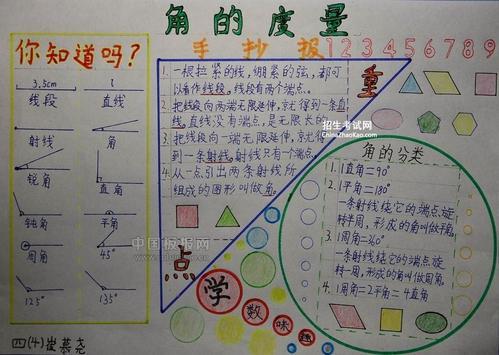 角的度量
手抄报
1 2 3 4 5 6 7 8 9
你知道吗？
3.5cm
线段
直线
射线
角
锐角
直角
钝角
平角
周角
45°
125°
135°
1.一根拉紧的线，绷紧的弦，都可
以看作线段，线段有两个端点。
2.把线段向两端无限延伸，就得到一条直
线，直线没有端点，是无限长的
3.把线段向一端无限延伸，就得
到一条射线，射线只有一个端点。
4.从一点引出两条射线所
组成的图形叫做角。
重
点
招生考试网
ChinaZhaoKao.com
角的分类
1.1直角=90°
2.1平角=180°
一条射线绕它的端点，旋
转半周，形成的角叫做平角。
3.1周角=360°
一条射线绕它的端点旋
转一周，形成的角叫做周角。
4.1周角=2平角=4直角
学
数
味
趣
中国板报网
四(4)崔慕尧